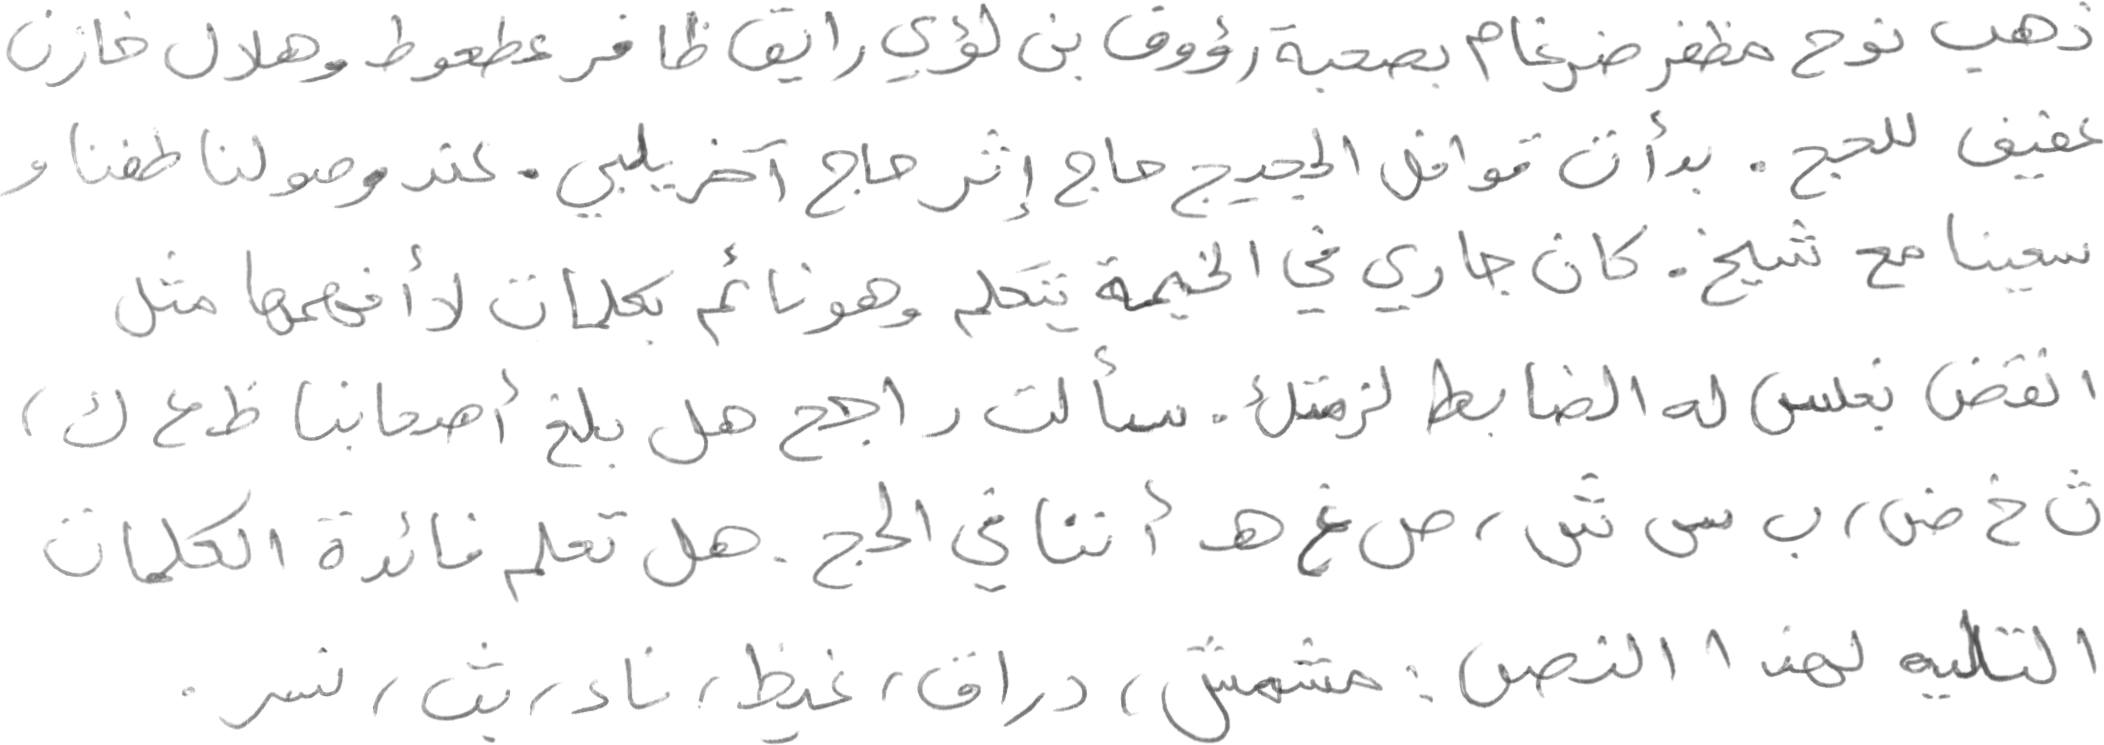 ذهب نوح مظفر ضرغام بصحبة رؤوف بن لؤي رايق ظافر عطعوط وهلال خازن
عفيف للحج. بدأت قوافل الحجيج حاج إثر حاج آخر يلبي. عند وصولنا طفنا و
سعينا مع شيخ. كان جاري في الخيمة يتكلم وهو نائم بكلمات لا أفهمها مثل
انقض نعلس له الضابط لزمتك. سألت راجح هل بلغ أصحابنا ظ ع ك،
ث خ ض، ب س ش، ص غ هـ أننا في الحج. هل تعلم فائدة الكلمات
التاليه لهذا النص: مشمش، دراق، غيظ، ناء، بث، نسر.